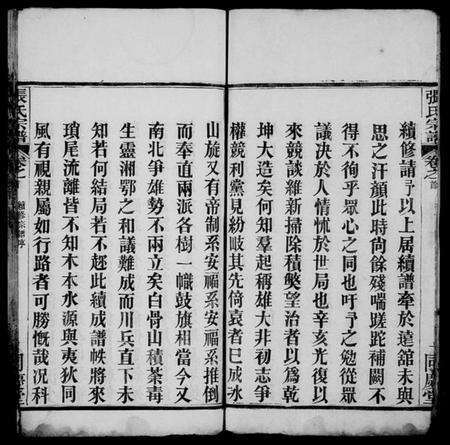 張氏宗譜
卷之首
續修請予以上居續譜牽於違舘未與
思之汗顏此時尙餘殘喘蹉跎補闕不
得不徇乎眾心之同也吁予之勉從眾
議決於人情怵於世局也辛亥光復以
來競談維新掃除積獘望治者以爲乾
坤大造矣何知羣起稱雄大非初志爭
權競利黨見紛岐其先倚袁者巳成氷
山旋又有帝制系安福系安福系推倒
而奉直兩派各樹一幟鼓旗相當今又
南北爭雄勢不兩立矣白骨山積荼毒
生靈湘鄂之和議難成而川兵直下未
知若何結局若不趂此續成譜帙將來
瑣尾流離皆不知木本水源與夷狄同
風有視親屬如行路者可勝慨哉况科
張氏宗譜
卷之首
續修宗譜序